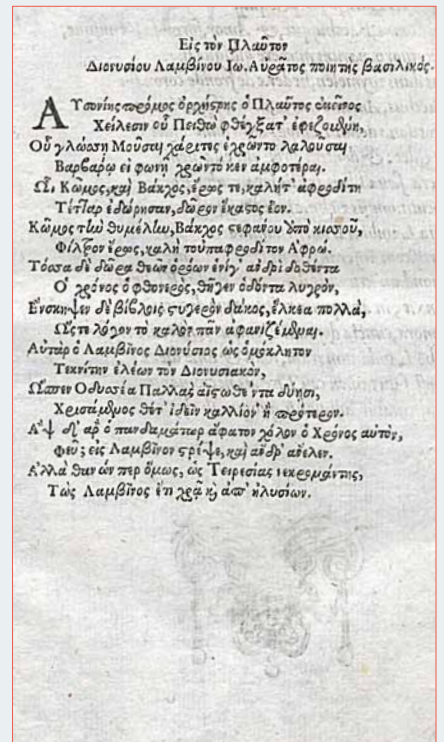 Εἰς τὸν Πλαῦτον
Διονυσίου Λαμβίνου Ἰω. Αὐρᾶτος ποιητὴς βασιλικός.
Αὐσονίης ὀρχηστὴς ὁ Πλαῦτος ἐκεῖνος
Χείλεσιν οὗ Πειθὼ φθέγξατ' ἐφεζομένη,
Οὗ γλώσσῃ Μοῦσαι χάριτες ἐχρῶντο λαλοῦσαι,
Βαρβάρῳ εἰ φωνῇ χρῶντό κεν ἀμφότεραι.
ᾯ Κῶμος, καὶ Βάκχος, ἔρως τε, καλήτ' ἀφροδίτη
Τέτταρ' ἐδώρησαν, δῶρον ἕκαστος ἑόν.
Κῶμος τὴν θυμέλην, Βάκχος στέφανον ὑπὸ κισσοῦ,
Φίλτρον ἔρως, καλὴ τοὐπαφρόδιτον Ἀφρώ.
Τόσσα δὲ δῶρα θεῶν ὁρόων ἑνὶ γ' ἀνδρὶ δοθέντα
Ὁ χρόνος ὁ φθονερὸς, θῆγεν ὀδόντα λυγρὸν,
Ἐνσκηψεν δὲ βίβλοις στυγερὸν δάκος, ἕλκεα πολλὰ,
Ὥστε λόγον τὸ καλὸν πᾶν ἀφανιζέμεναι.
Αὐτὰρ ὁ Λαμβῖνος Διονύσιος ὡς ὁμόκλητον
Τεχνίτην ἐλέων τὸν Διονυσιακὸν,
Ὦσσεν Ὀδυσσέα Παλλὰς
Χρισσάμενος θέτ' ἰδεῖν καλλίον' ἢ πρότερον.
Ἂψ δ' ἄρ' ὁ πανδαμάτωρ ἄφατον χόλον ὁ Χρόνος αὐτὸν,
Φεῦ; εἰς Λαμβῖνον τρέψε, καὶ ἄνδρ' ἄνελεν.
Ἀλλὰ θανών περ ὅμως, ὡς Τειρεσίας νεκρομάντης,
Τὼς Λαμβῖνος ἔτι χρᾷ κ ἀπ' ἠλυσίων.